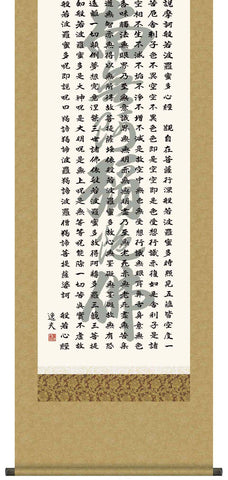 説摩訶般若波羅蜜多心経 観自在菩薩行深般若波羅蜜多時照見五蘊皆空度一
苦厄舎利子色不異空空不異色色即是空空即是色受想行識亦復如是舎利子是諸
空相不生不滅不垢不浄不増不減是故空中無色無受想行識無眼耳鼻舌身意無色
香味触法無眼界乃至無意識界無無明亦無無明尽乃至無老死亦無老死尽無苦集
道無智亦無得以無所得故菩提薩埵依般若波羅蜜多故心無罣礙無罣礙故無有恐
遠離一切顛倒夢想究竟涅槃三世諸仏依般若波羅蜜多故得阿耨多羅三藐三菩提
知般若波羅蜜多是大神呪是大明呪是無上呪是無等等呪能除一切苦真実不虚故
般若波羅蜜多呪即説呪曰羯諦羯諦波羅羯諦波羅僧羯諦菩提薩婆訶 般若心経